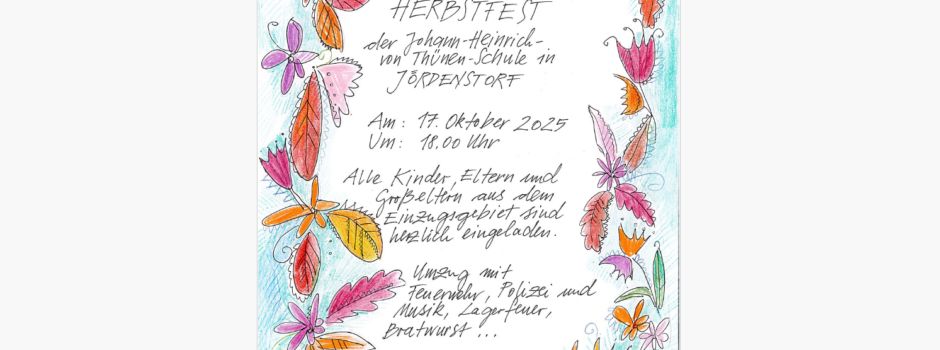 HERBSTFEST
der Johann-Heinrich-
von Thünen-Schule in
JÖRDENSTORF
Am: 17. Oktober 2025
Um: 18.00 Uhr
Alle Kinder, Eltern und
Großeltern aus dem
Einzugsgebiet sind
herzlich eingeladen.
Umzug mit
Feuerwehr, Polizei und
Musik, Lagerfeuer,
Bratwurst ...